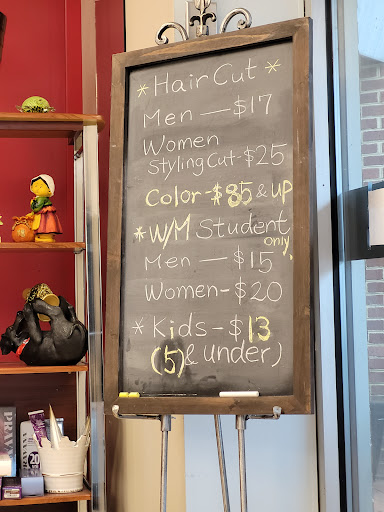 * Hair Cut *
Men — $17
Women
Styling Cut - $25
Color - $85 & up
* W/M Student
only.
Men — $15
Women - $20
* Kids - $13
(5 & under)
PRAVA
20